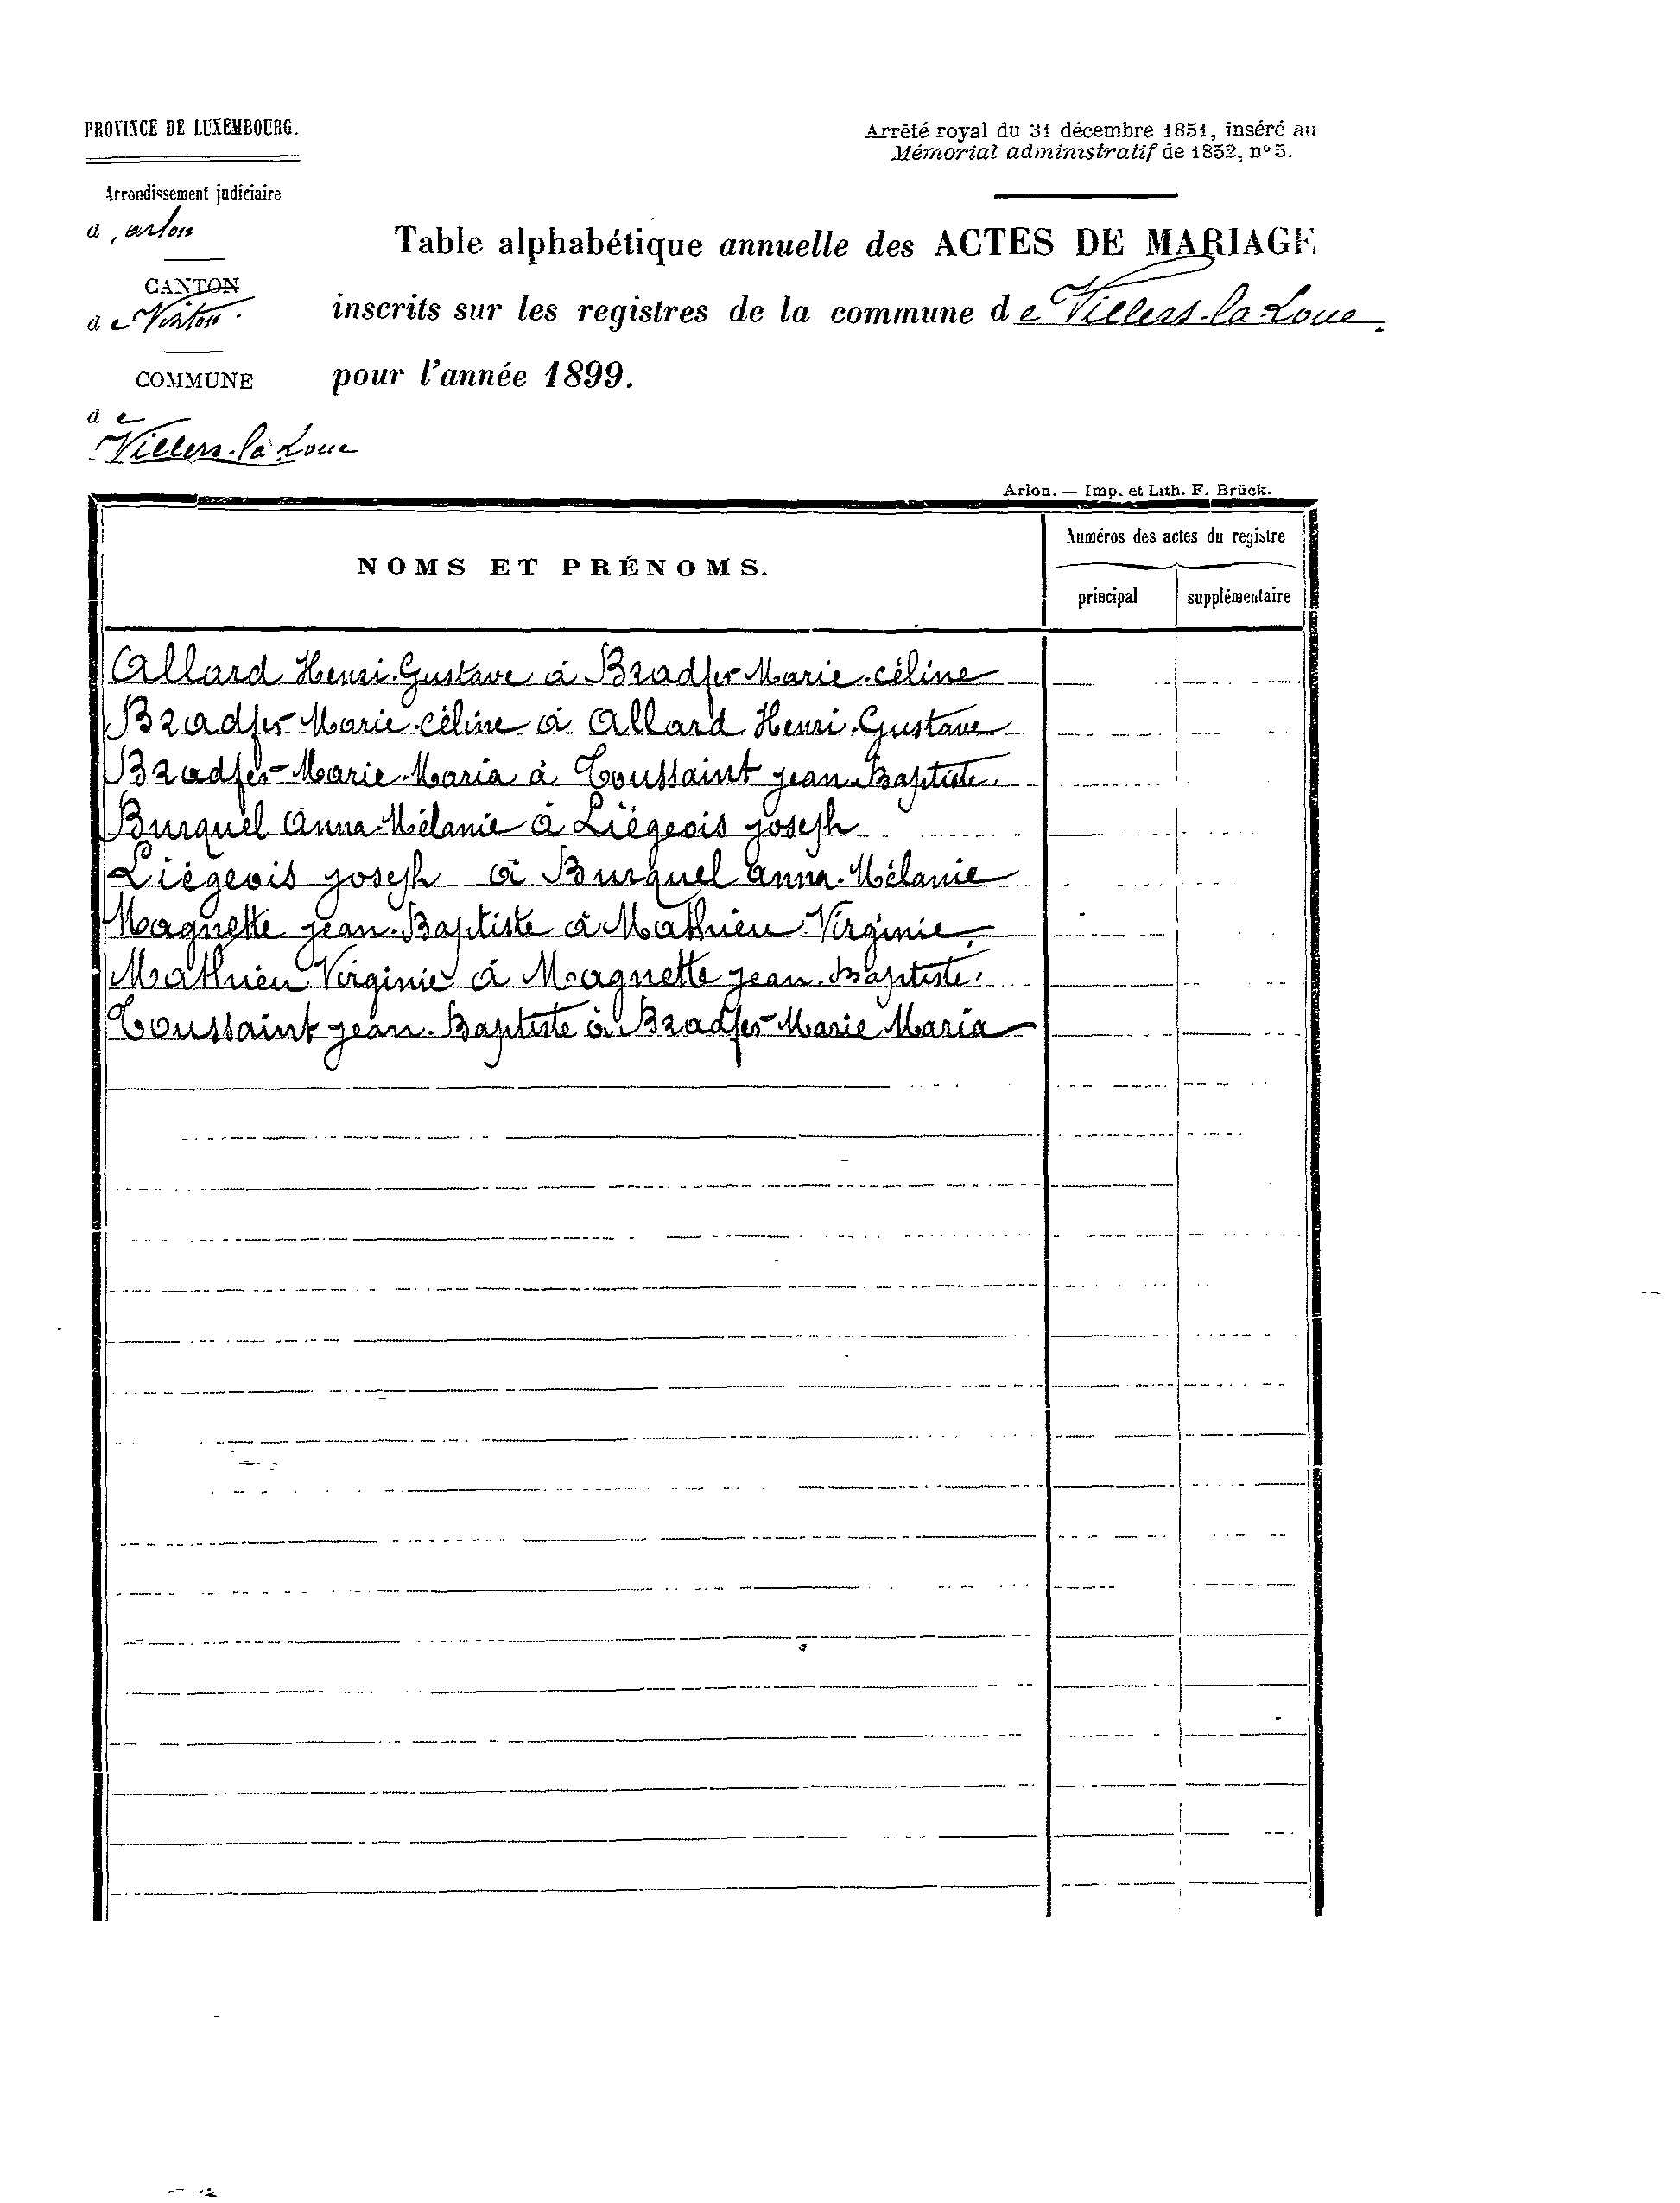 PROVINCE DE LUXEMBOURG.
Arrêté royal du 31 décembre 1851, inséré au
Mémorial administratif de 1852, nº 5.
Arrondissement judiciaire
d, arlon
Table alphabétique annuelle des ACTES DE MARIAGE
CANTON
de Virton.
inscrits sur les registres de la commune de Villers-la-Loue.
COMMUNE
pour l'année 1899.
de
Villers-la-Loue
Arlon. — Imp. et Lith. F. Brück.
NOMS ET PRÉNOMS.
Numéros des actes du registre
principal
supplémentaire
Allard Henri-Gustave à Bradfer Marie-céline
Bradfer Marie-céline à Allard Henri-Gustave
Bradfer Marie-Maria à Toussaint jean-Baptiste.
Burquel Anna-Mélanie à Liégeois joseph
Liégeois joseph à Burquel Anna-Mélanie
Magnette jean-Baptiste à Mathieu Virginie.
Mathieu Virginie à Magnette jean-Baptiste.
Toussaint jean-Baptiste à Bradfer Marie Maria